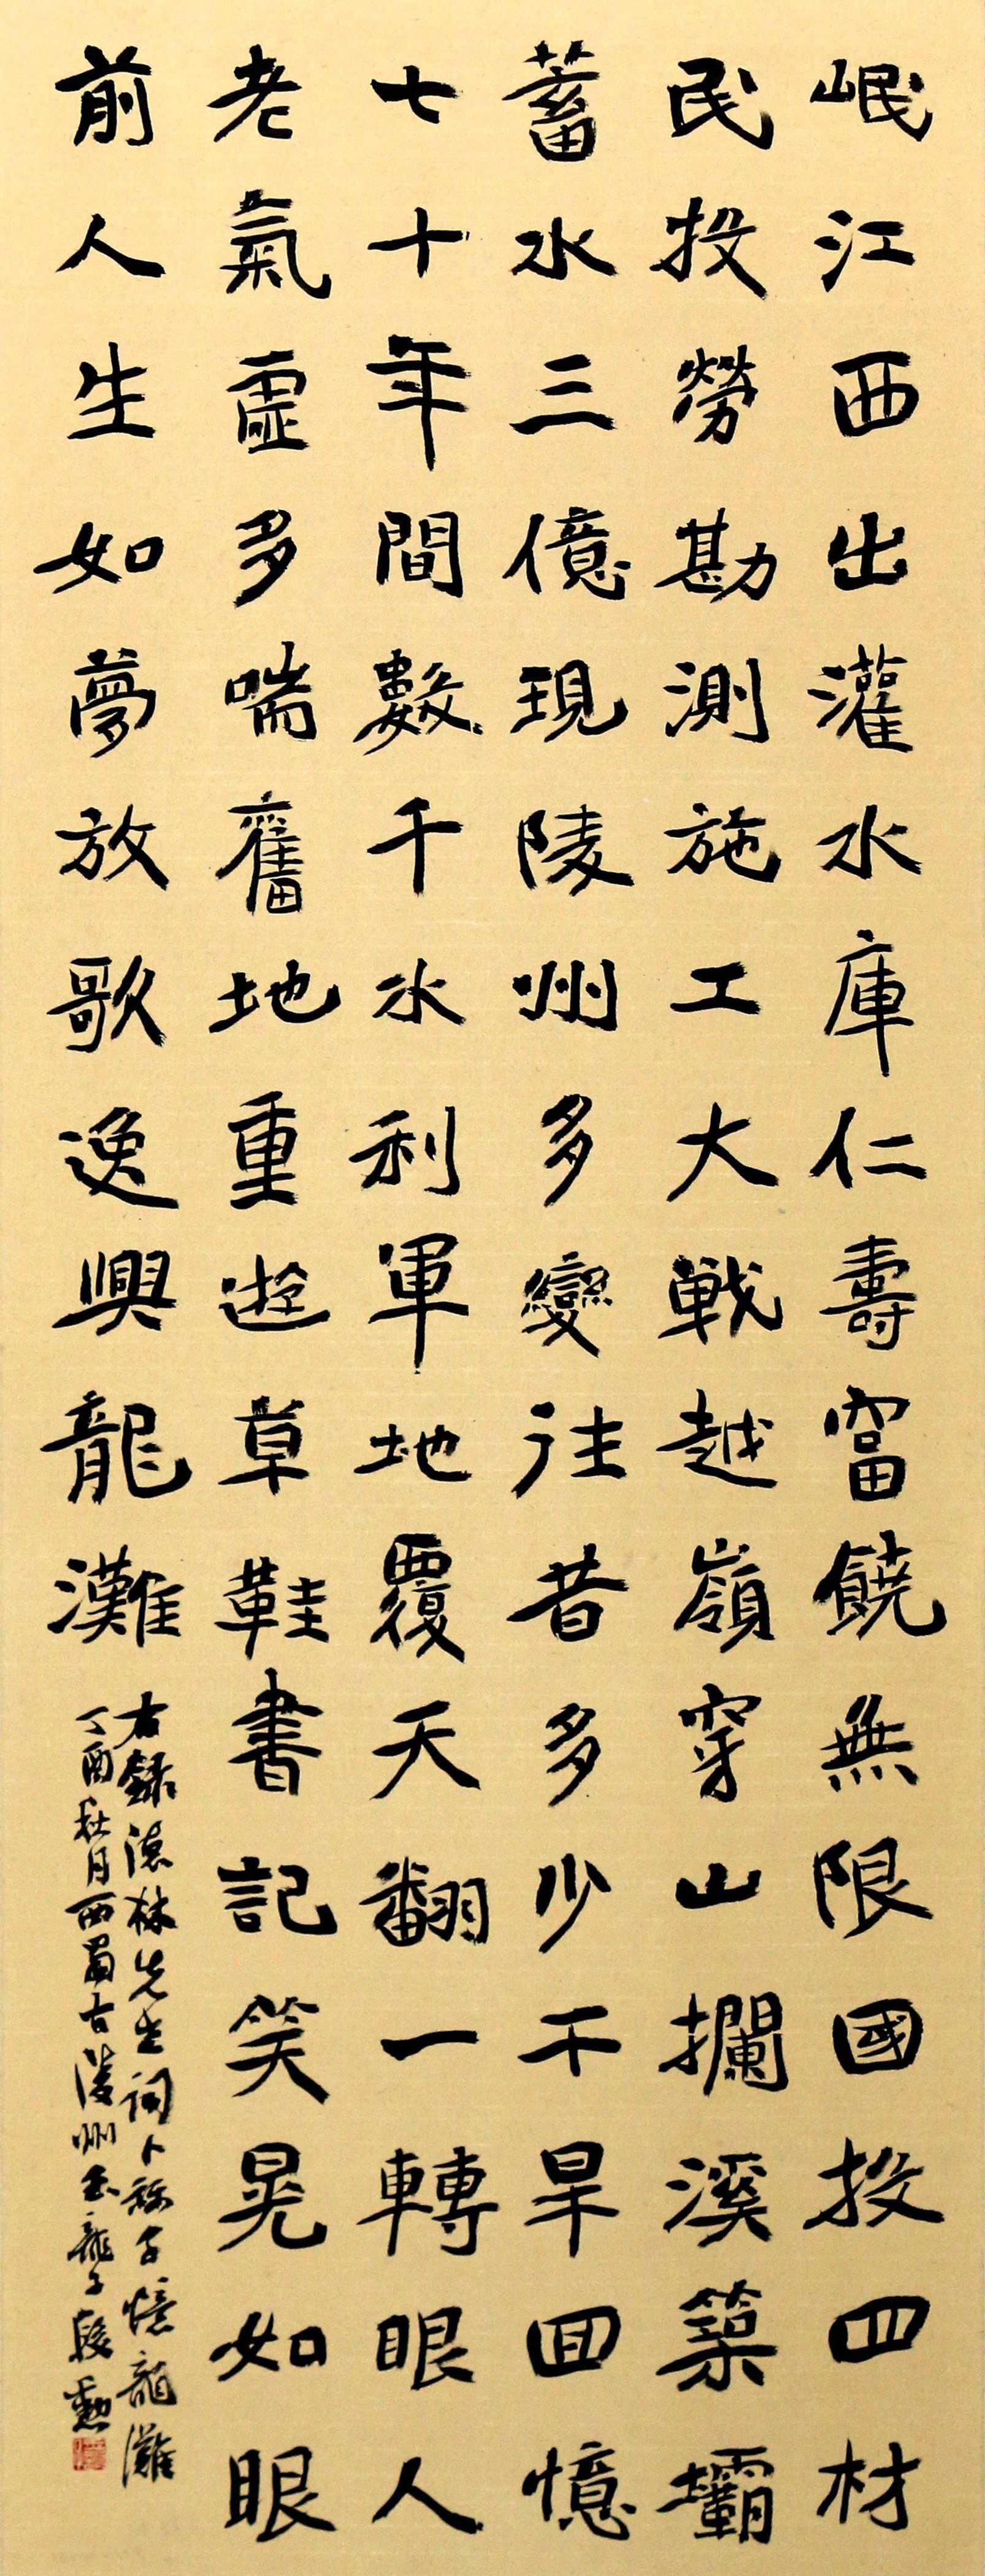 岷江西出灌水庫仁壽富饒無限國投四材
民投勞勘測施工大戰越嶺穿山攔溪築壩
蓄水三億現陵州多變往昔多少干旱回憶
七十年間數千水利軍地覆天翻一轉眼人
老氣虛多喘舊地重遊草鞋書記笑晃如眼
前人生如夢放歌逸興龍灘
右錄德林先生詞卜算子憶龍灘
丁酉秋月西蜀古陵州玉龍子段勳